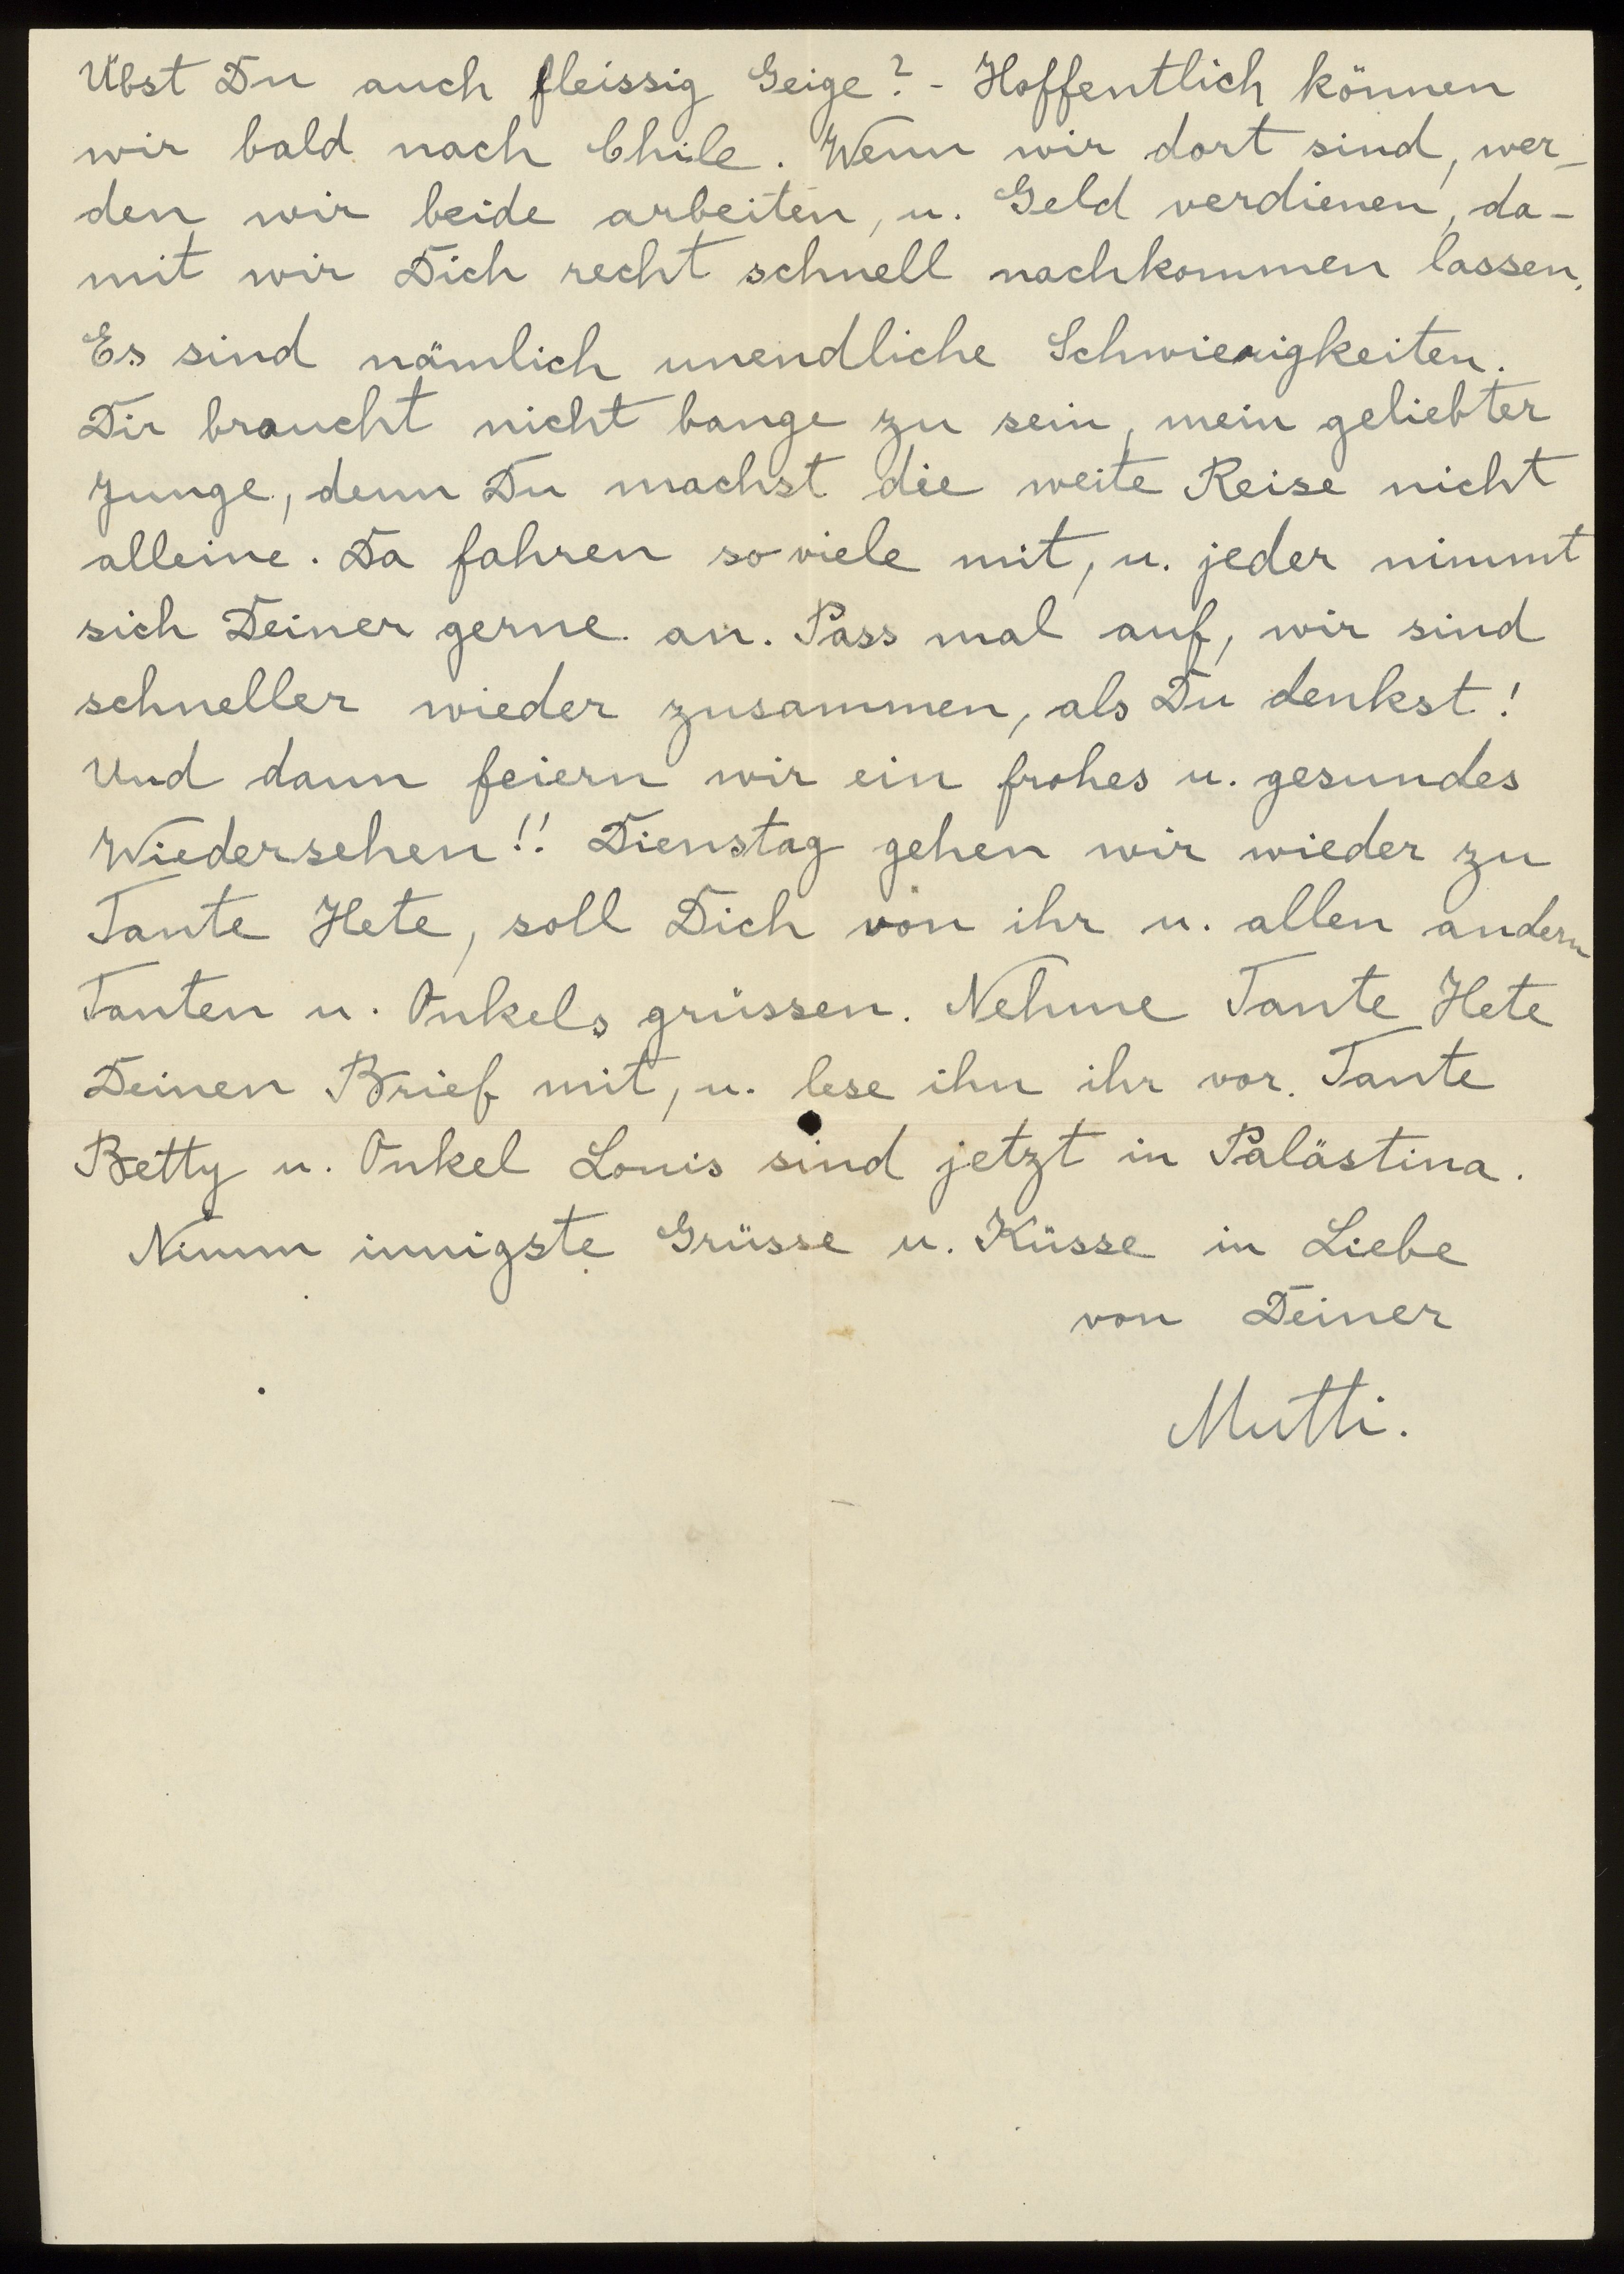 Übst Du auch fleissig Geige? - Hoffentlich können
wir bald nach Chile. Wenn wir dort sind, wer-
den wir beide arbeiten, u. Geld verdienen, da-
mit wir Dich recht schnell nachkommen lassen.
Es sind nämlich unendliche Schwierigkeiten.
Dir braucht nicht bange zu sein, mein geliebter
Junge, denn Du machst die weite Reise nicht
alleine. Da fahren so viele mit, u. jeder nimmt
sich Deiner gerne an. Pass mal auf, wir sind
schneller wieder zusammen, als Du denkst!
Und dann feiern wir ein frohes u. gesundes
Wiedersehen!! Dienstag gehen wir wieder zu
Tante Hete, soll Dich von ihr u. allen andern
Tanten u. Onkels grüssen. Nehme Tante Hete
Deinen Brief mit, u. lese ihn ihr vor. Tante
Betty u. Onkel Louis sind jetzt in Palästina.
Nimm innigste Grüsse u. Küsse in Liebe
von Deiner
Mutti.